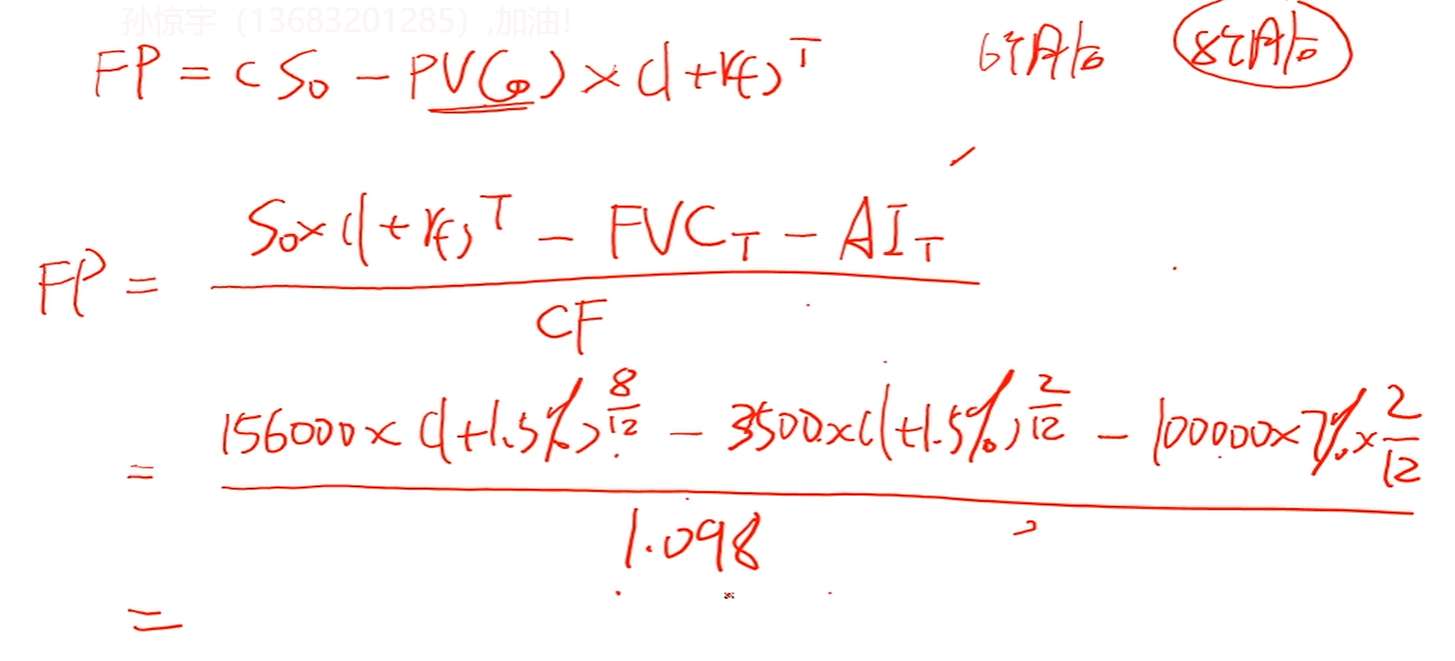 孙惊宇（13683201285）,加油!
FP = (S₀ − PVC₀) × (1+rf)ᵀ 6个月后 8个月后
S₀×(1+rf)ᵀ − FVC_T − AI_T
FP =
CF
156000×(1+1.5%)^(8/12) − 3500×(1+1.5%)^(2/12) − 100000×7%×2/12
=
1.098
=